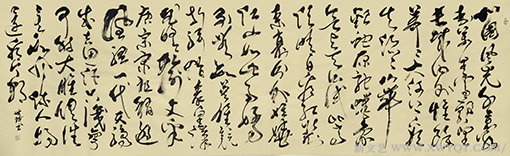 北国风光千里冰
封万里雪飘望
长城内外惟余
莽莽大河上下顿
失滔滔山舞
银蛇原驰蜡象
欲与天公试比高
须晴日看红装
素裹分外妖娆
江山如此多娇
引无数英雄竞
折腰惜秦皇汉
武略输文采
唐宗宋祖稍逊
风骚一代天骄
成吉思汗只识弯
弓射大雕俱往
矣数风流人物
还看今朝